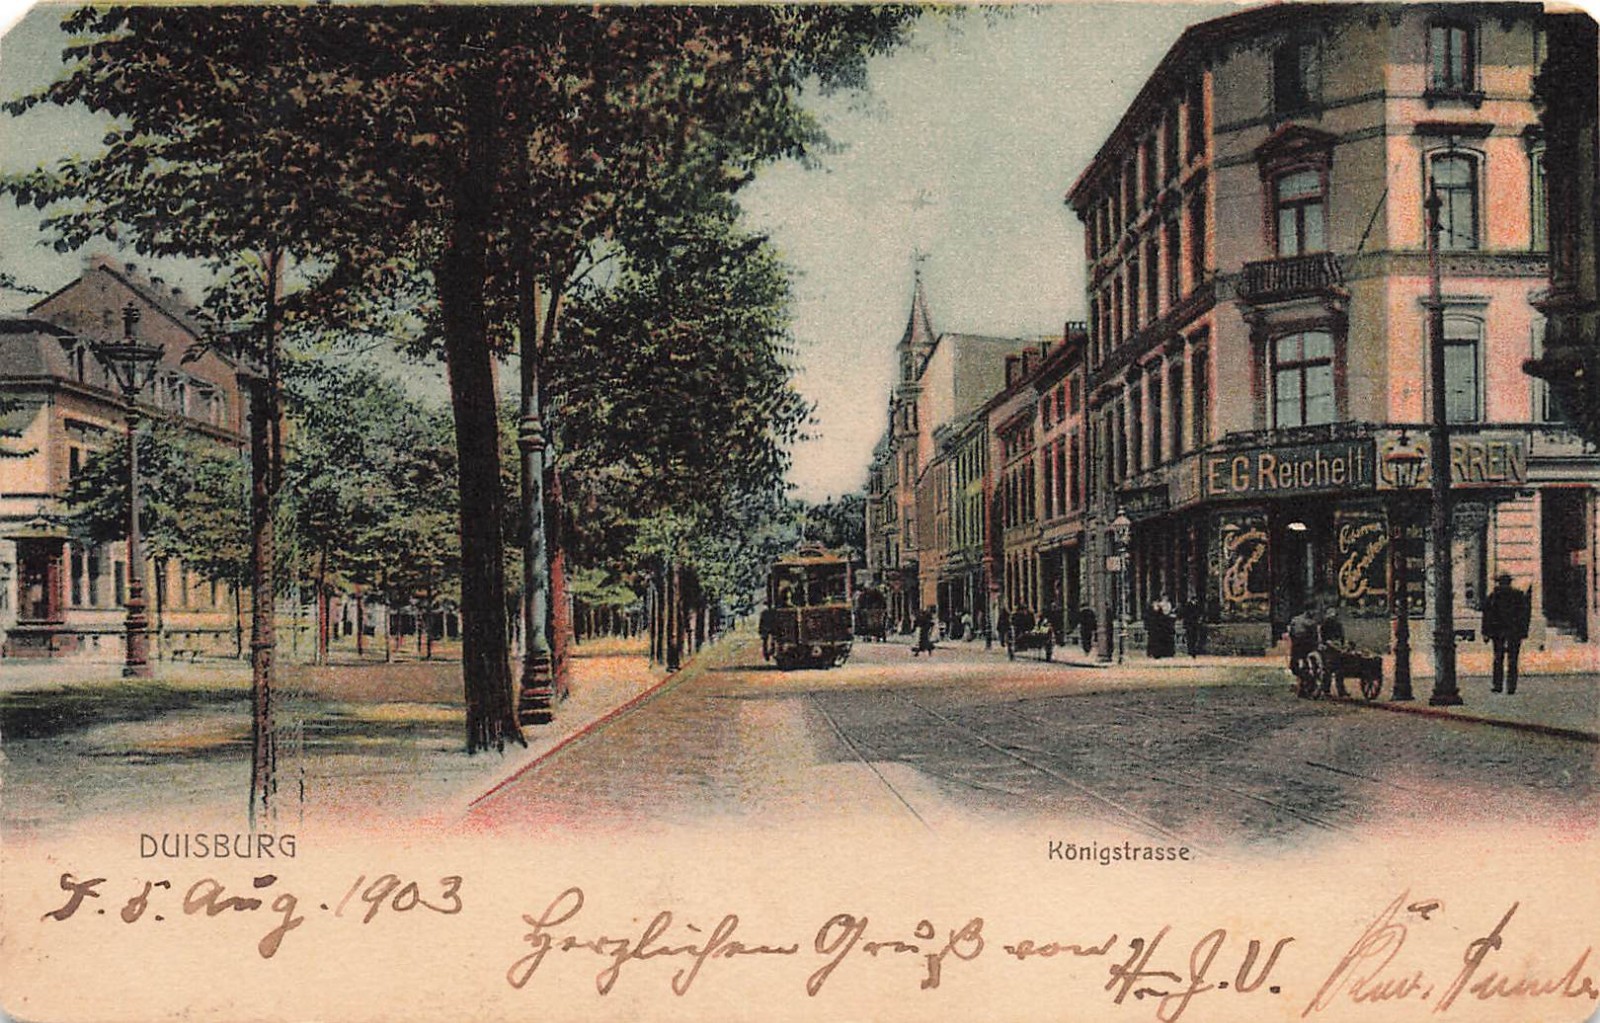 E.G. Reichelt
RREN
DUISBURG
Königstrasse.
d. 5. Aug. 1903
Herzlichen Gruß von